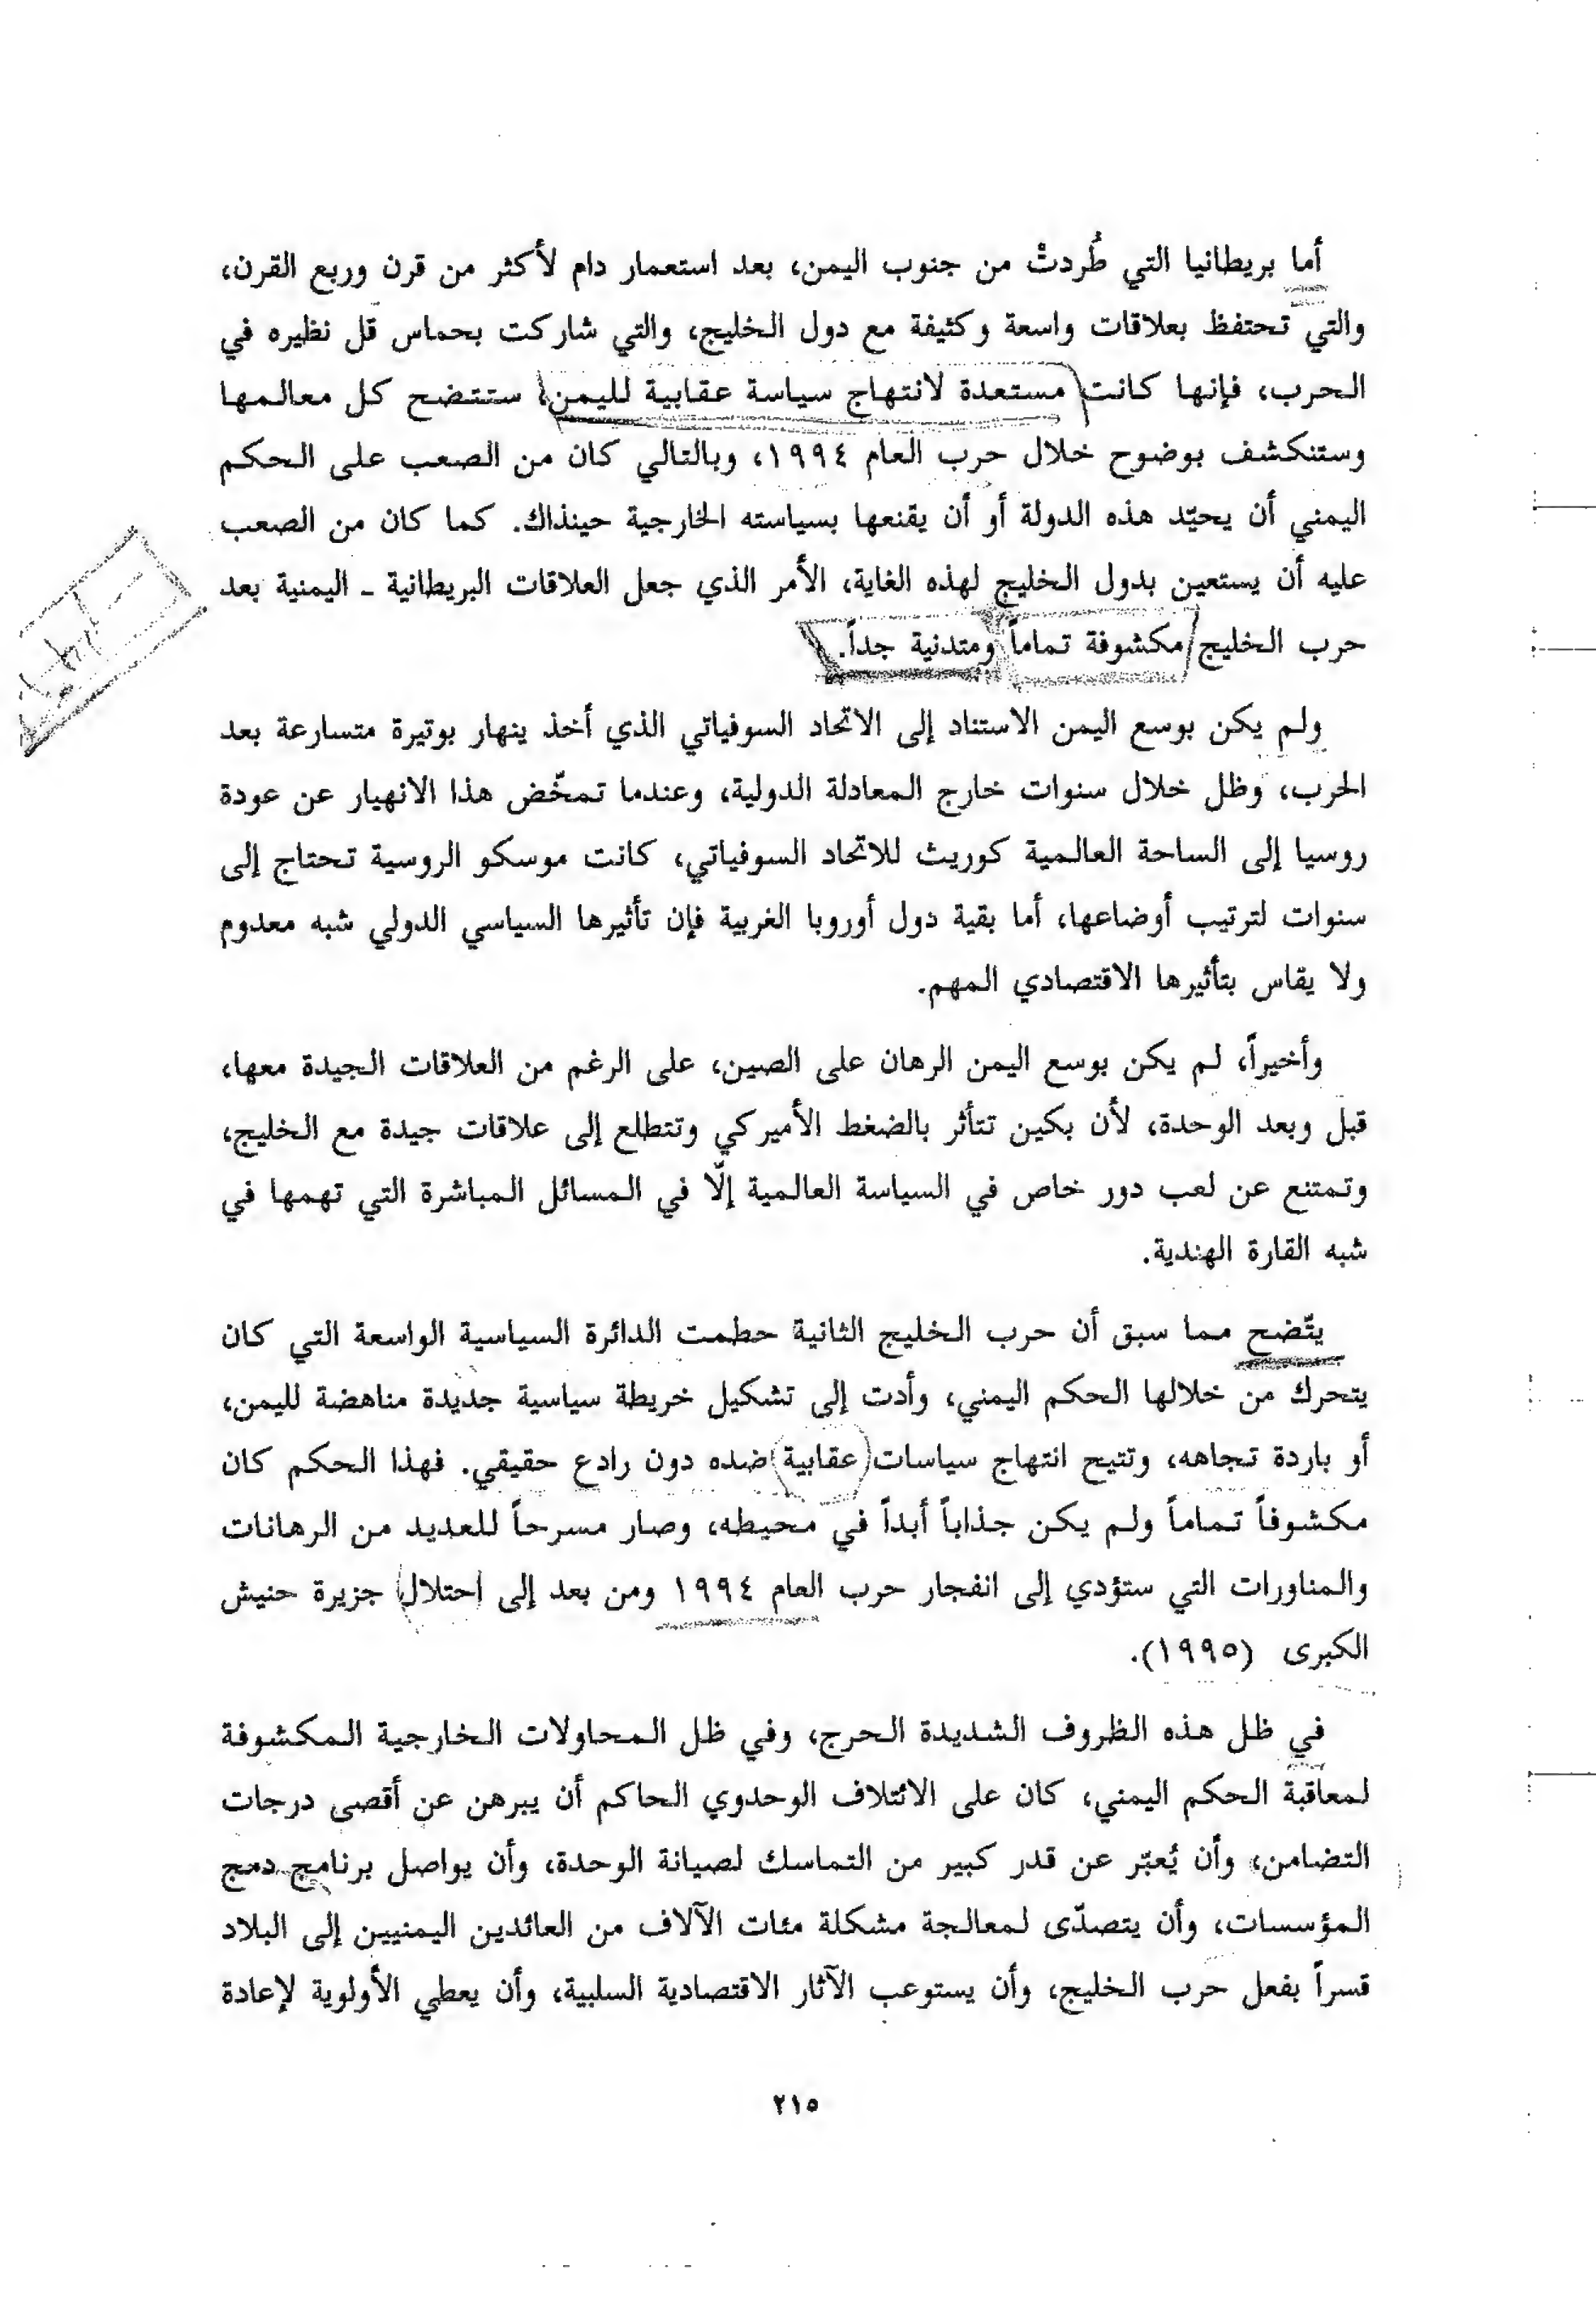 أما بريطانيا التي طُردتْ من جنوب اليمن، بعد استعمار دام لأكثر من قرن وربع القرن،
والتي تحتفظ بعلاقات واسعة وكثيفة مع دول الخليج، والتي شاركت بحماس قل نظيره في
الحرب، فإنها كانت مستعدة لانتهاج سياسة عقابية لليمن، ستتضح كل معالمها
وستنكشف بوضوح خلال حرب العام ١٩٩٤، وبالتالي كان من الصعب على الحكم
اليمني أن يحيّد هذه الدولة أو أن يقنعها بسياسته الخارجية حينذاك. كما كان من الصعب
عليه أن يستعين بدول الخليج لهذه الغاية، الأمر الذي جعل العلاقات البريطانية ـ اليمنية بعد
حرب الخليج مكشوفة تماماً ومتدنية جداً.
ولم يكن بوسع اليمن الاستناد إلى الاتحاد السوفياتي الذي أخذ ينهار بوتيرة متسارعة بعد
الحرب، وظل خلال سنوات خارج المعادلة الدولية، وعندما تمخّض هذا الانهيار عن عودة
روسيا إلى الساحة العالمية كوريث للاتحاد السوفياتي، كانت موسكو الروسية تحتاج إلى
سنوات لترتيب أوضاعها، أما بقية دول أوروبا الغربية فإن تأثيرها السياسي الدولي شبه معدوم
ولا يقاس بتأثيرها الاقتصادي المهم.
وأخيراً، لم يكن بوسع اليمن الرهان على الصين، على الرغم من العلاقات الجيدة معها،
قبل وبعد الوحدة، لأن بكين تتأثر بالضغط الأميركي وتتطلع إلى علاقات جيدة مع الخليج،
وتمتنع عن لعب دور خاص في السياسة العالمية إلّا في المسائل المباشرة التي تهمها في
شبه القارة الهندية.
يتّضح مما سبق أن حرب الخليج الثانية حطمت الدائرة السياسية الواسعة التي كان
يتحرك من خلالها الحكم اليمني، وأدت إلى تشكيل خريطة سياسية جديدة مناهضة لليمن،
أو باردة تجاهه، وتتيح انتهاج سياسات عقابية ضده دون رادع حقيقي. فهذا الحكم كان
مكشوفاً تماماً ولم يكن جذاباً أبداً في محيطه، وصار مسرحاً للعديد من الرهانات
والمناورات التي ستؤدي إلى انفجار حرب العام ١٩٩٤ ومن بعد إلى احتلال جزيرة حنيش
الكبرى (١٩٩٥).
في ظل هذه الظروف الشديدة الحرج، وفي ظل المحاولات الخارجية المكشوفة
لمعاقبة الحكم اليمني، كان على الائتلاف الوحدوي الحاكم أن يبرهن عن أقصى درجات
التضامن، وأن يُعبّر عن قدر كبير من التماسك لصيانة الوحدة، وأن يواصل برنامج دمج
المؤسسات، وأن يتصدّى لمعالجة مشكلة مئات الآلاف من العائدين اليمنيين إلى البلاد
قسراً بفعل حرب الخليج، وأن يستوعب الآثار الاقتصادية السلبية، وأن يعطي الأولوية لإعادة
٢١٥